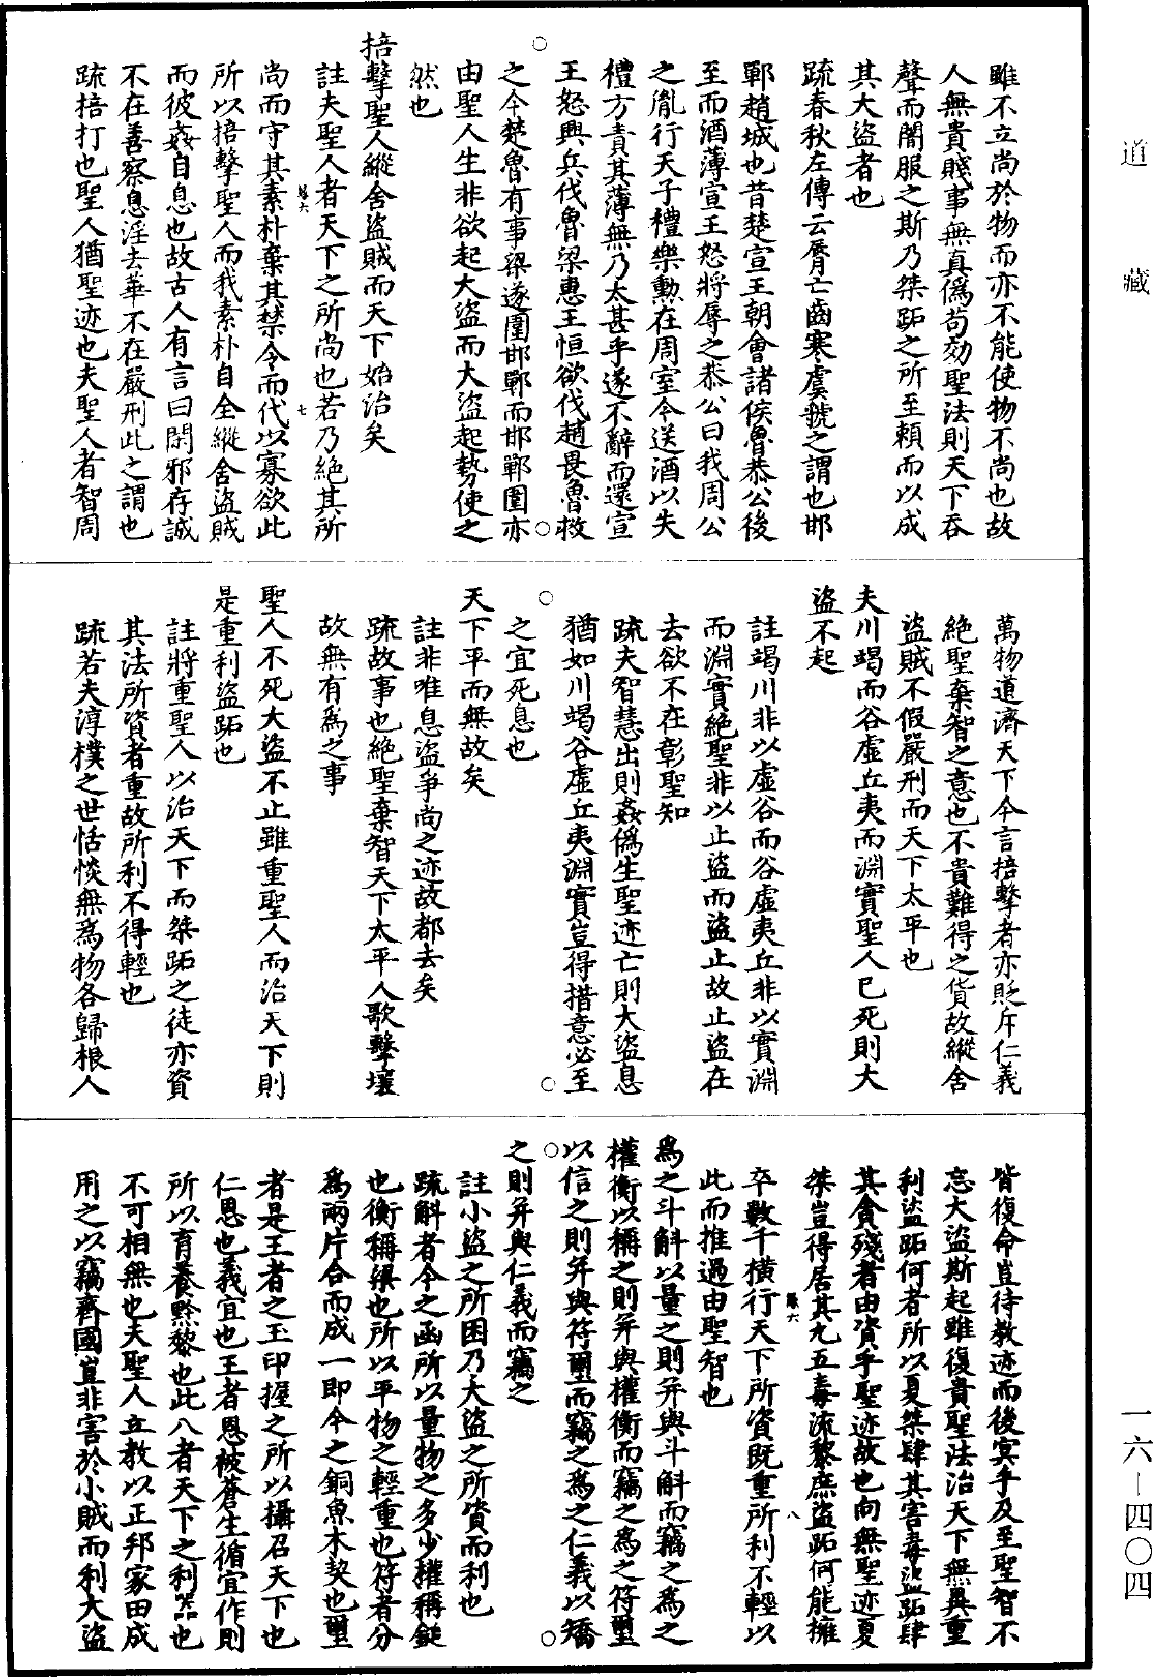 道藏
雖不立尚於物而亦不能使物不尚也故
人無貴賤事無真僞苟効聖法則天下吞
聲而闇服之斯乃桀跖之所至賴而以成
其大盜者也
疏春秋左傳云脣亡齒寒虞虢之謂也邯
鄲趙城也昔楚宣王朝會諸侯魯恭公後
至而酒薄宣王怒將辱之恭公曰我周公
之胤行天子禮樂勳在周室今送酒以失
禮方責其薄無乃太甚乎遂不辭而還宣
王怒興兵伐魯梁惠王恒欲伐趙畏魯救
之今楚魯有事梁遂圍邯鄲而邯鄲圍亦
由聖人生非欲起大盜而大盜起勢使之
然也
掊擊聖人縱舍盜賊而天下始治矣
註夫聖人者天下之所尚也若乃絕其所
尚而守其素朴棄其禁令而代以寡欲此
所以掊擊聖人而我素朴自全縱舍盜賊
而彼姦自息也故古人有言曰閑邪存誠
不在善察息淫去華不在嚴刑此之謂也
疏掊打也聖人猶聖迹也夫聖人者智周
萬物道濟天下今言掊擊者亦貶斥仁義
絕聖棄智之意也不貴難得之貨故縱舍
盜賊不假嚴刑而天下太平也
夫川竭而谷虛丘夷而淵實聖人已死則大
盜不起
註竭川非以虛谷而谷虛夷丘非以實淵
而淵實絕聖非以止盜而盜止故止盜在
去欲不在彰聖知
疏夫智慧出則姦僞生聖迹亡則大盜息
猶如川竭谷虛丘夷淵實豈得措意必至
之宜死息也
天下平而無故矣
註非唯息盜爭尚之迹故都去矣
疏故事也絕聖棄智天下太平人歌擊壤
故無有爲之事
聖人不死大盜不止雖重聖人而治天下則
是重利盜跖也
註將重聖人以治天下而桀跖之徒亦資
其法所資者重故所利不得輕也
疏若夫淳樸之世恬惔無爲物各歸根人
皆復命豈待教迹而後冥乎及至聖智不
忘大盜斯起雖復貴聖法治天下無異重
利盜跖何者所以夏桀肆其害毒盜跖肆
其貪殘者由資乎聖迹故也向無聖迹夏
桀豈得居其九五毒流黎庶盜跖何能擁
卒數千橫行天下所資既重所利不輕以
此而推過由聖智也
爲之斗斛以量之則并與斗斛而竊之爲之
權衡以稱之則并與權衡而竊之爲之符璽
以信之則并與符璽而竊之爲之仁義以矯
之則并與仁義而竊之
註小盜之所困乃大盜之所資而利也
疏斛者今之函所以量物之多少權稱鎚
也衡稱梁也所以平物之輕重也符者分
爲兩片合而成一即今之銅魚木契也璽
者是王者之玉印握之所以攝召天下也
仁恩也義宜也王者恩被蒼生循宜作則
所以育養黔黎也此八者天下之利器也
不可相無也夫聖人立教以正邦家田成
用之以竊齊國豈非害於小賊而利大盜
一六—四〇四